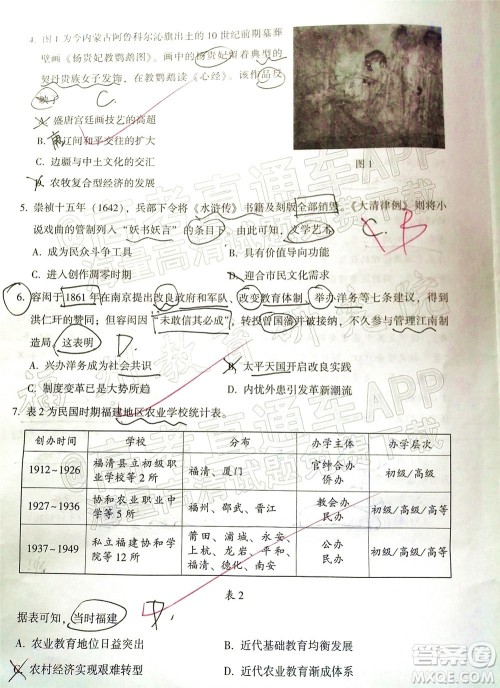 4. 图1为今内蒙古阿鲁科尔沁旗出土的10世纪前期墓葬
壁画《杨贵妃教鹦鹉图》。画中的杨贵妃留着典型的
契丹贵族女子发饰，在教鹦鹉读《心经》。该作品反
映了
A. 盛唐宫廷画技艺的高超
B. 宋辽间和平交往的扩大
C. 边疆与中土文化的交汇
D. 农牧复合型经济的发展
图1
5. 崇祯十五年（1642），兵部下令将《水浒传》书籍及刻版全部销毁。《大清律例》则将小
说戏曲的管制列入“妖书妖言”的条目。由此可知，文学艺术
C.
B
A. 成为民众斗争工具
B. 具有价值导向功能
C. 进入创作凋零时期
D. 迎合市民文化需求
6. 容闳于1861年在南京提出改良政府和军队、改变教育体制、举办洋务等七条建议，得到
洪仁玕的赞同；但容闳因“未敢信其必成”，转投曾国藩并被接纳，不久参与管理江南制
造局。这表明
D.
A. 兴办洋务成为社会共识
B. 太平天国开启改良实践
C. 制度变革已是大势所趋
D. 内忧外患引发革新潮流
7. 表2为民国时期福建地区农业学校统计表。
创办时间 学校 分布 办学主体 办学层次
1912~1926 福清县立初级职业学校等2所 福清、厦门 官绅合办 侨办 初级/高级
1927~1936 协和农业职业中学等5所 福州、邵武、晋江 教会办 民办 初级/高级/高等
1937~1949 私立福建协和学院等13所 莆田、福州、永安、上杭、龙岩、平和、福清、德化、南安 公办 民办 初级/高级/高等
表2
据表可知，当时福建
D.
A. 农业教育地位日益突出
B. 近代基础教育均衡发展
C. 农村经济实现艰难转型
D. 近代农业教育渐成体系
答案圈
MXQE.COM